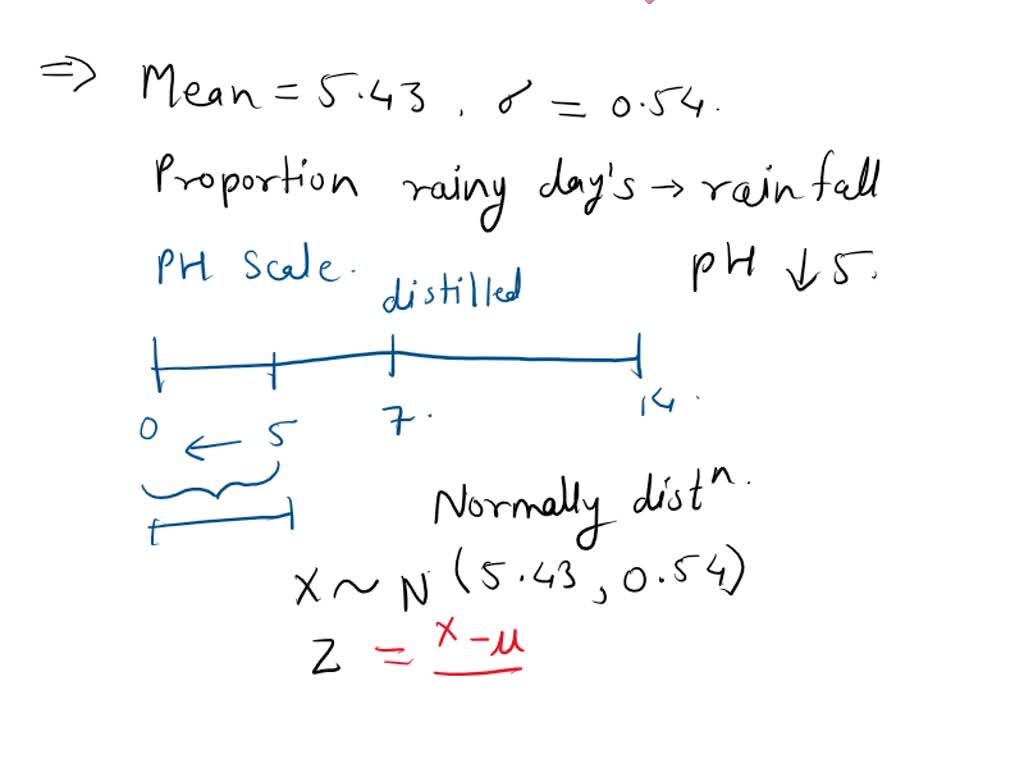 ⇒ Mean = 5.43, σ = 0.54.
Proportion rainy day's → rainfall
PH Scale. pH ↓ 5.
distilled
0 ← 5 7. 14.
Normally distⁿ.
X ~ N (5.43, 0.54)
Z = x - μ